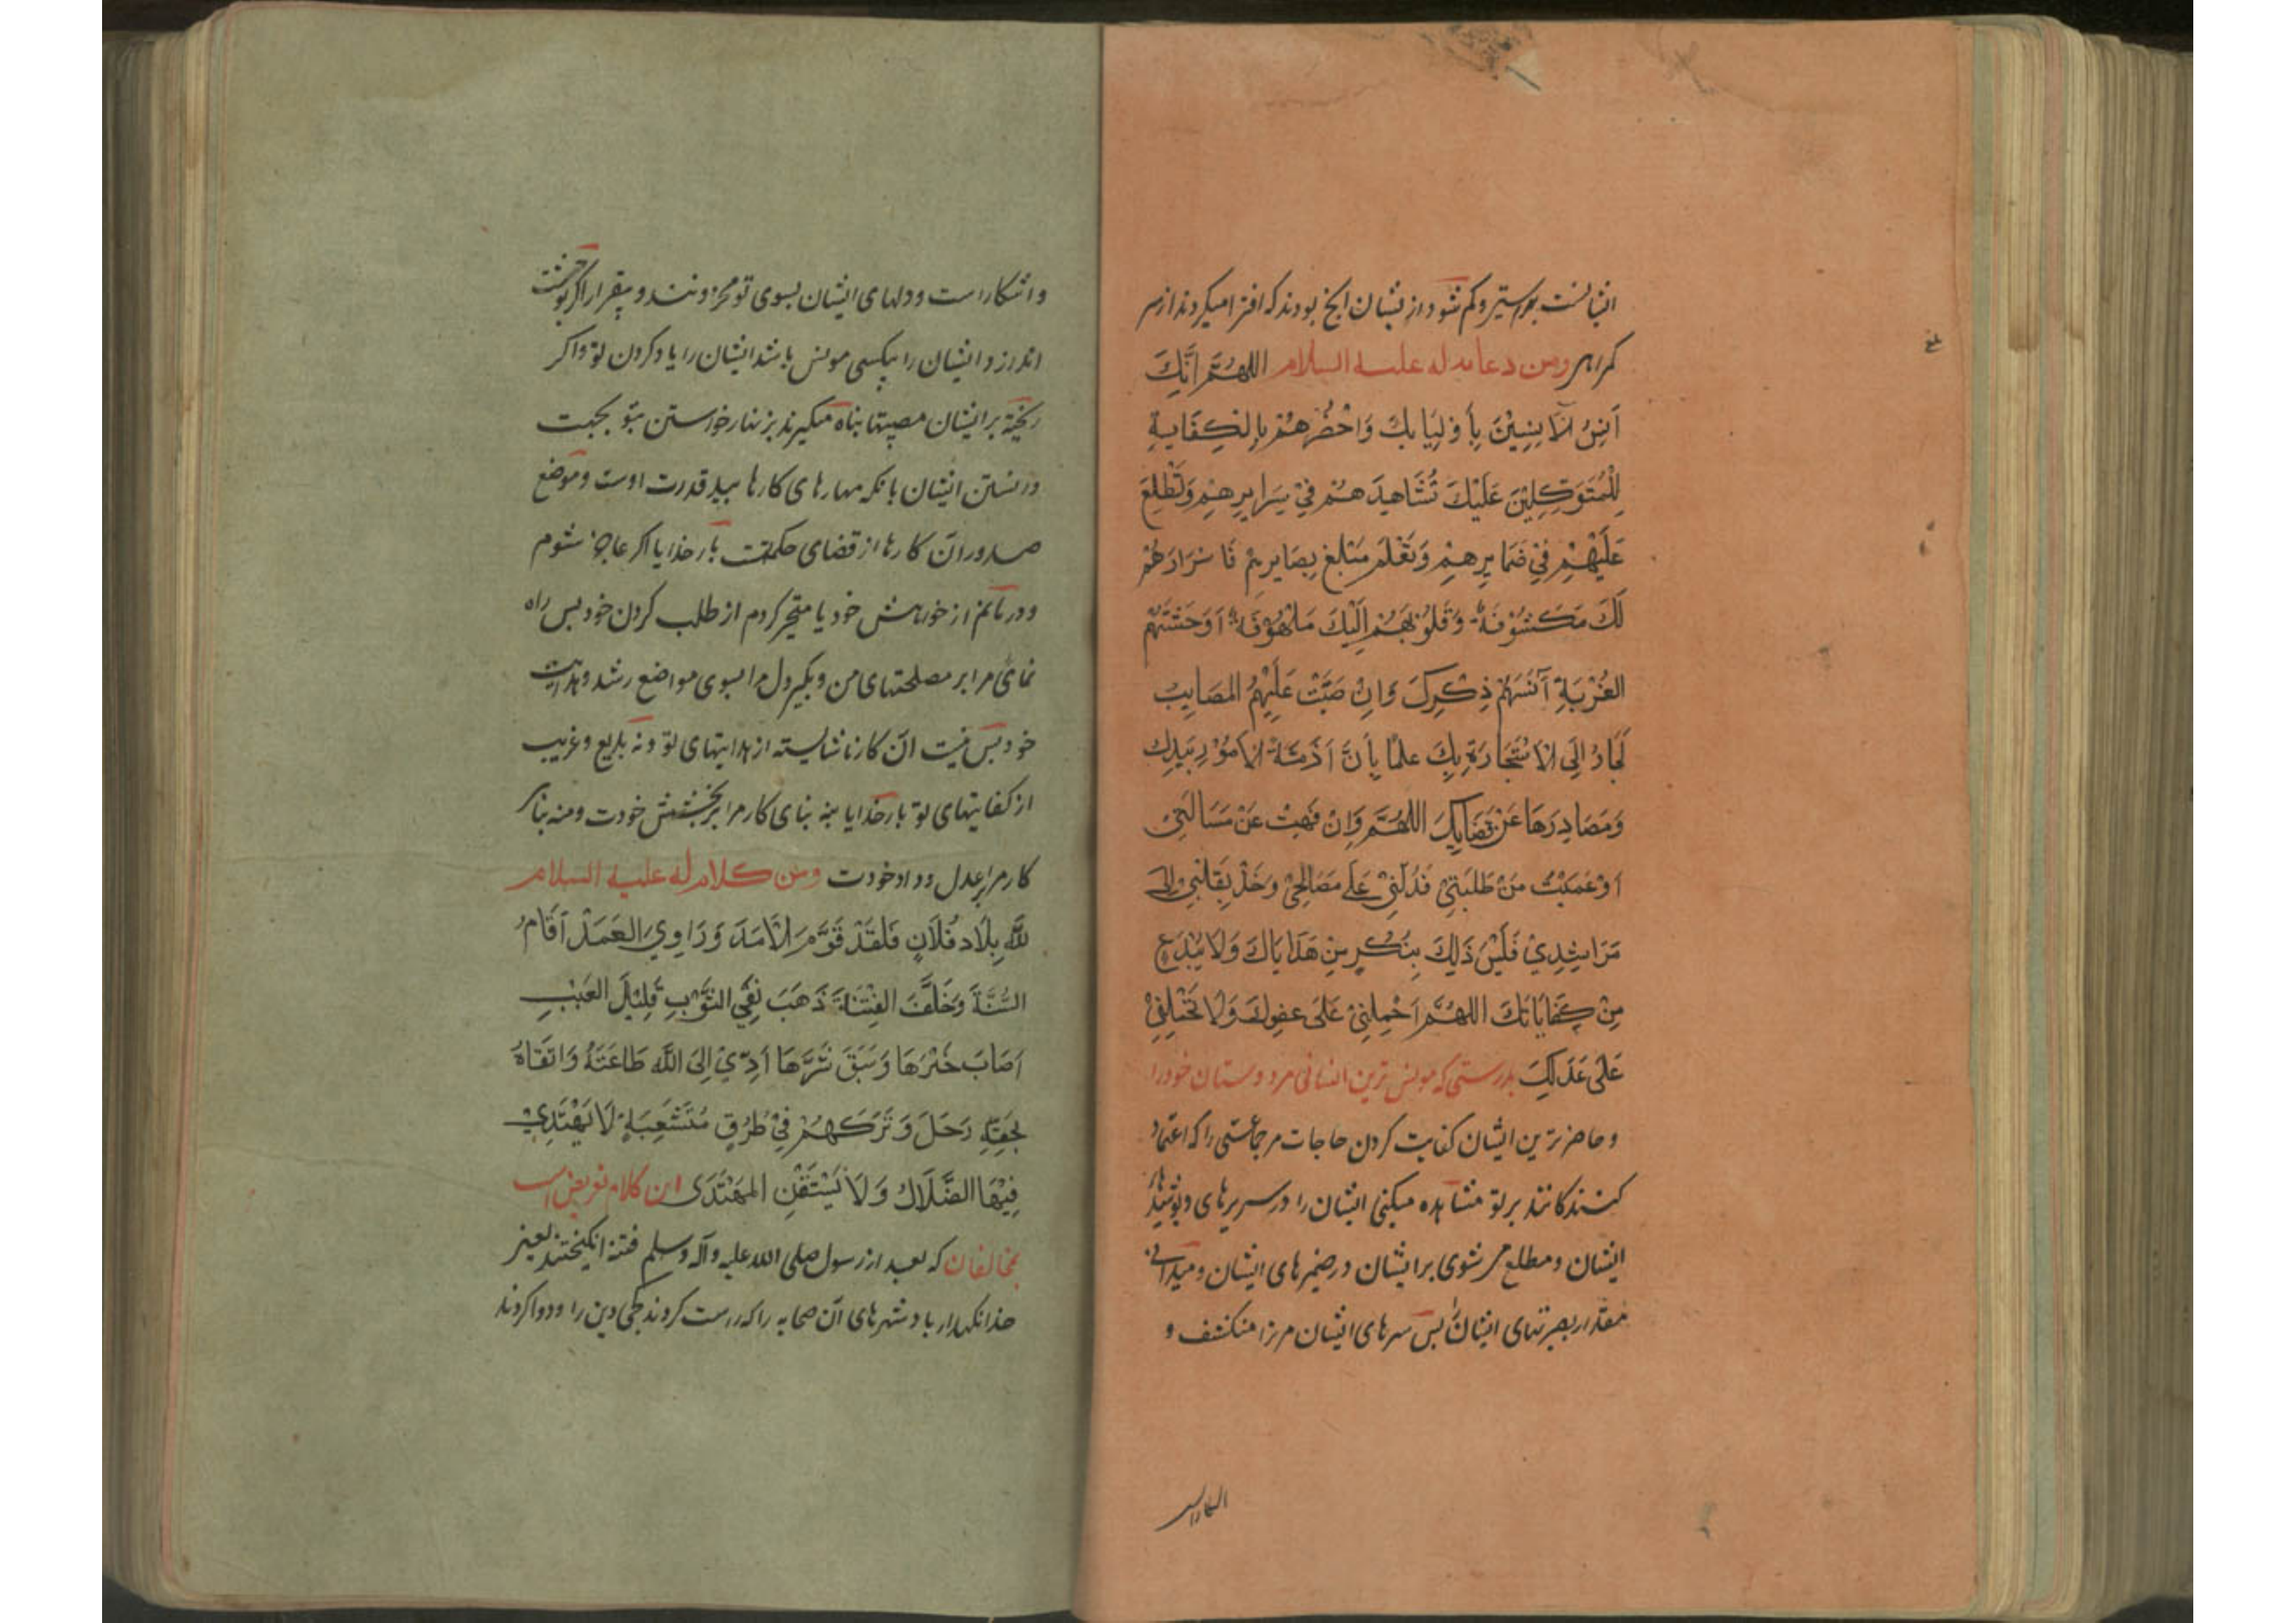 کمراهی ومن دعاء له علیه السلام اللهُمَّ اِنَّكَ
آنِسُ الْآنِسِيْنَ بِأَوْلِيَابِكَ وَاَحْضَرُهُمْ بِالْكِفَايَةِ
لِلْمُتَوَكِلِيْنَ عَلَيْكَ تُشَاهِدَهُمْ فِيْ سَرَايِرِهِمْ وَتَطْلِعَ
عَلَيْهِمْ فِيْ ضَمَايِرِهِمْ وَتَعْلَمَ مَبْلَغَ بِصَايِرِهِمْ فَاسْرَارَهُمْ
لَكَ مَكْشُوْفَةٌ وَقُلُوْبَهُمْ اِلَيْكَ مَلْهُوْفَةٌ اَوَحَشَتَهُم
الغُرْبَةِ آنَسَهُمْ ذِكْرِكَ وَاِنْ صَبَّتْ عَلَيْهِمُ المصَايِبُ
لَجَاؤُ اِلَى الْاِسْتِجَارَةِ بِكَ عِلْمًا بِأَنَّ اَذِمَّةَ الْاُمُوْرِ بِيَدِكَ
وَمَصَادِرَهَا عَنْ قَضَايِكَ اللهُمَّ وَاِنْ فَهِهتُ عَنْ مَسَالَتِيْ
اَوْ عَمَيْتُ مَنْ طَلِبَتِيْ فَدُلَّنِيْ عَلَى مَصَالِحِيْ وَخُذْ بِقَلْبِيْ اِلَى
مَرَاشِدِيْ فَلَيْسَ ذَلِكَ بِنُكْرٍ مِنْ هَدَايَاتَكَ وَلَا بِبِدْعٍ
مِنْ كِفَايَاتَكَ اللهُمَّ اَحْمِلْنِيْ عَلَى عَفوِكَ وَلَا تَحْمِلْنِيْ
عَلَى عَدْلِكَ بدرستی که مونس ترین انسانی مر دوستان خود را
وحاضرترین ایشان کفایت کردن حاجات مر جماعتی را که اعتماد
کنندکانند بر تو مشاهده میکنی ایشان را در سریرهای وپوشیدها
ایشان ومطلع می شوی بر ایشان در ضمیرهای ایشان ومیدانی
مقدار بصیرتهای ایشان پس سرهای ایشان مر ترا منکشف و
واشکار است ودلهای ایشان بسوی تو محزونند وبیقرار اکر بوحشت
اندازد ایشان را بیکسی مونس باشد ایشان را یاد کردن تو واکر
ریخته بر ایشان مصیبتها پناه میکیرند بزنهار خواستن بتو بجهت
دانستن ایشان بانکه مهارهای کارها بید قدرت اوست وموضع
صدور ان کارها از قضای حکمتت بار خدایا اکر عاجز شوم
ودرمانم از خواهش خود یا متحیر کردم از طلب کردن خود پس راه
نمای مرا بر مصلحتهای من وبکیر دل مرا بسوی مواضع رشد وهدایت
خود پس نیست ان کار ناشایسته از هدایتهای تو ونه بدیع وغریب
از کفایتهای تو بار خدایا بنه بنای کار مرا بر بخشش خودت ومنه بنای
کار مرا بر عدل وداد خودت ومن کلام له علیه السلام
لله بِلَاد فُلَانٍ فَلَقَدْ قَوَّمَ الْاَمَدَ وَدَاوِيَ العَمَدْ اَقَامُ
السُّنَّةَ وَخَلَّفَ الفِتْنَةَ ذَهَبَ نَقِيَّ الثَّوْبِ قَلِيْلَ العَيْبِ
اَصَابَ خَيْرَهَا وَسَبَقَ شَرَّهَا اَدِّيْ اِلَى اللَّه طَاعَتَهُ وَاتقَاهُ
بِحَقِّهِ رَحَلَ وَتَرَكَهُمْ فِيْ طُرُقٍ مُتَشَعِبَةٍ لَا يَهْتَدِيْ
فِيْهَا الضَّلَالُ وَلَا يَسْتَيْقِنَ المهْتَدَى این کلام تعریض است
بمخالفان که بعد از رسول صلی الله علیه وآله وسلم فتنه انکیختند یعنی
خدا نکهدار باد شهرهای آن صحابه را که راست کردند کجی دین را ودوا کردند